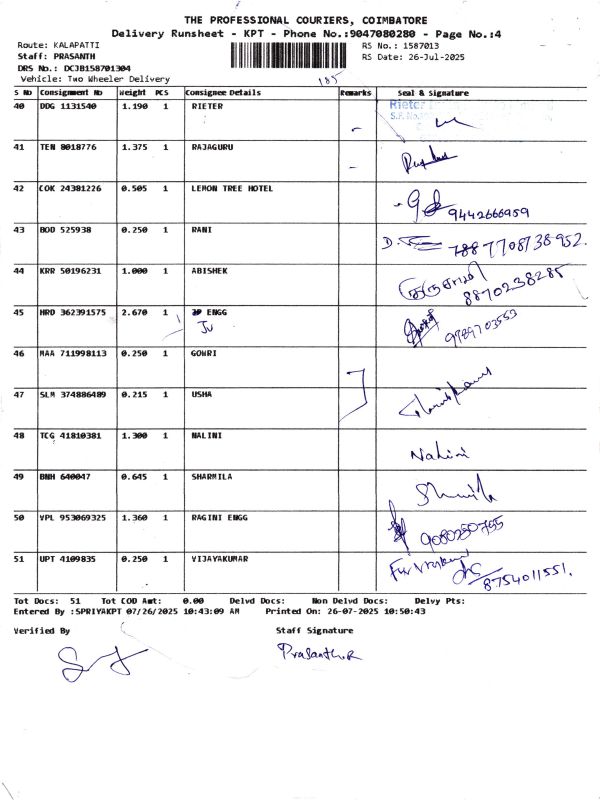 THE PROFESSIONAL COURIERS, COIMBATORE
Delivery Runsheet - KPT - Phone No.:9047080280 - Page No.:4
Route: KALAPATTI RS No.: 1587013
Staff: PRASANTH RS Date: 26-Jul-2025
DRS No.: DCJB158701304
Vehicle: Two Wheeler Delivery
185
S No Consignment No Weight PCS Consignee Details Remarks Seal & Signature
40 DDG 1131540 1.190 1 RIETER Rieter
41 TEN 8018776 1.375 1 RAJAGURU
42 COK 24381226 0.505 1 LEMON TREE HOTEL 9442666959
43 BOD 525938 0.250 1 RANI 7708738952.
44 KRR 50196231 1.000 1 ABISHEK குருசாமி 8870238285
45 HRD 362391575 2.670 1 JP ENGG 9789703553
46 MAA 711998113 0.250 1 GOWRI
47 SLM 374886489 0.215 1 USHA
48 TCG 41810381 1.300 1 NALINI Nalini
49 BNH 640047 0.645 1 SHARMILA
50 VPL 953069325 1.360 1 RAGINI ENGG 9080280755
51 UPT 4109835 0.250 1 VIJAYAKUMAR 8754011551.
Tot Docs: 51 Tot COD Amt: 0.00 Delvd Docs: Non Delvd Docs: Delvy Pts:
Entered By :SPRIYAKPT 07/26/2025 10:43:09 AM Printed On: 26-07-2025 10:50:43
Verified By Staff Signature
Prasanth.R